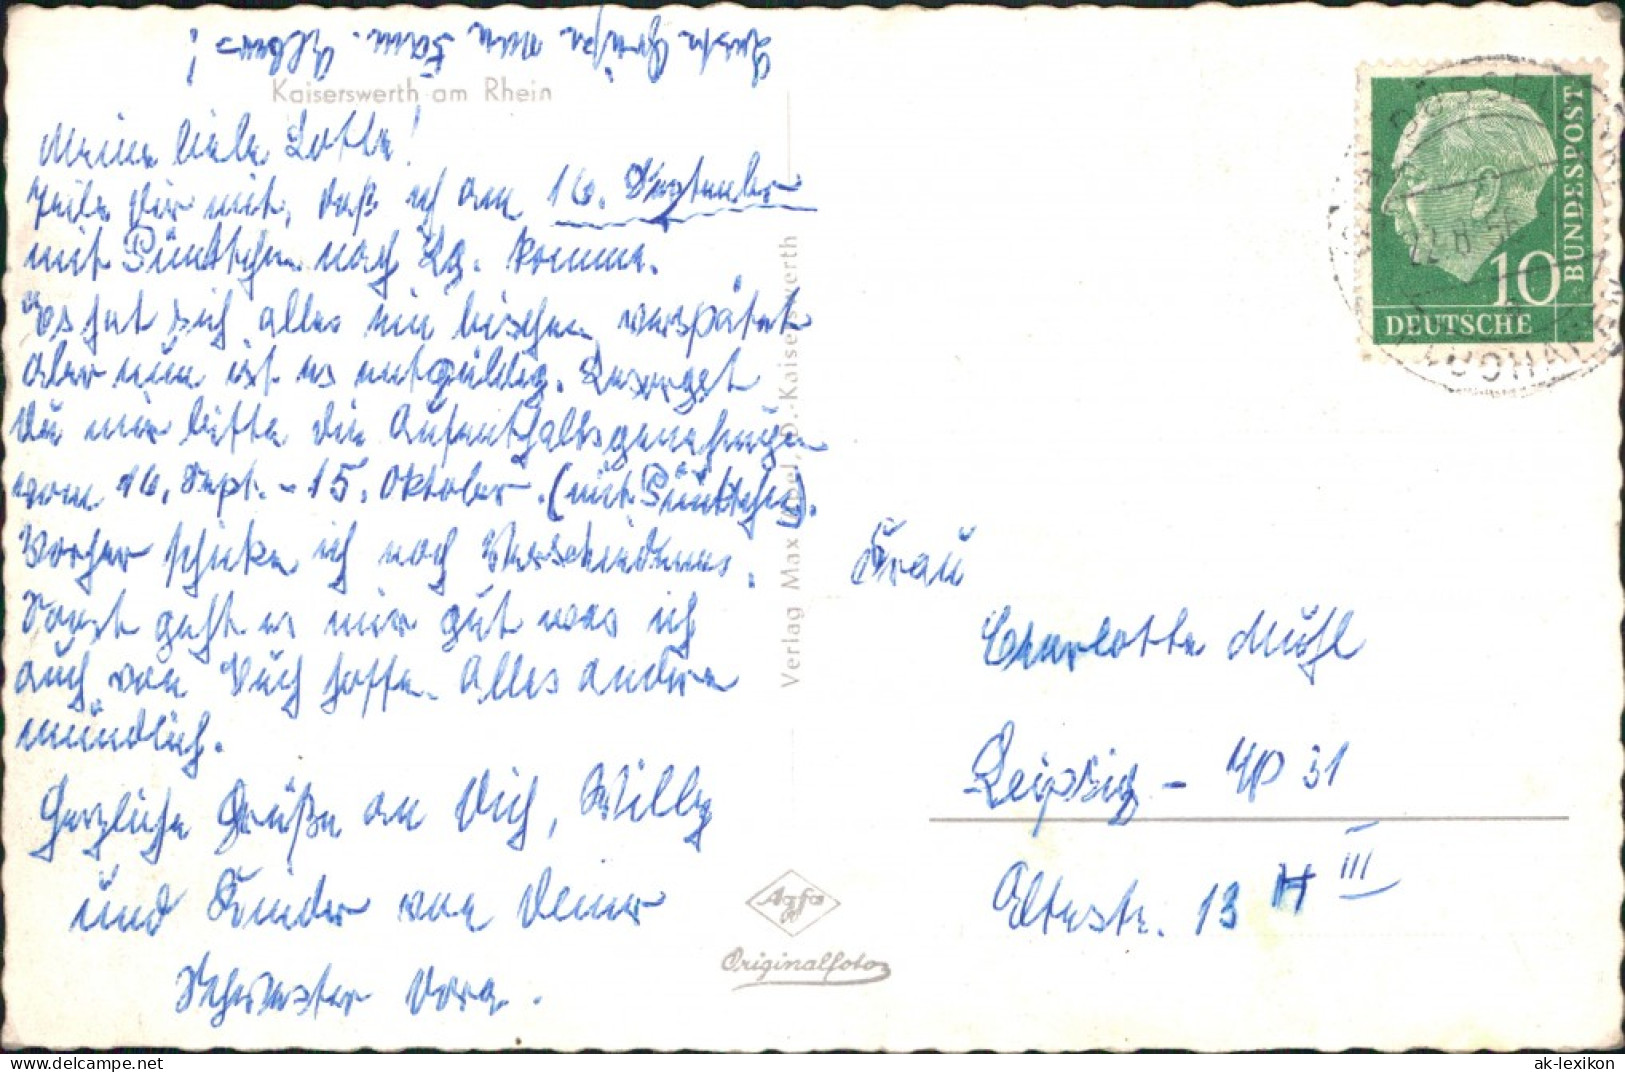 Beste Grüße von Fam. Ilbers!
Kaiserswerth am Rhein
Meine liebe Lotte!
Teile Dir mit, daß ich am 16. September
mit Pünktchen nach Lg. komme.
Es hat sich alles ein bischen verspätet
aber nun ist es entgültig. Besorget
Du mir bitte die Aufenthaltsgenehmigen
vom 16. Sept. - 15. Oktober. (mit Pünktchen).
Vorher schicke ich noch Verschiedenes.
Sonst geht es mir gut was ich
auch von Euch hoffe. Alles andere
mündlich.
Herzliche Grüße an Dich, Willy
und Kinder von Deiner
Schwester Dora.
Verlag Max Dr.-Kaiserswerth
Agfa
Originalfoto
BUNDESPOST
10
DEUTSCHE
22.8.56
Frau
Charlotte Mühl
Leipzig - 31
Eltestr. 13 H III
© oldthing.de
ak-lexikon